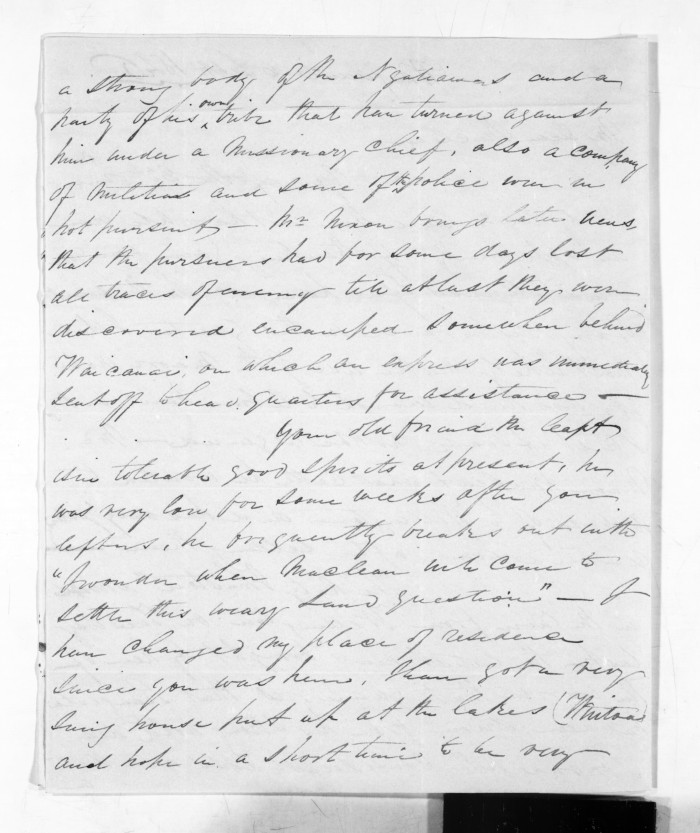 a strong body of the Ngatiawas and a
party of his own tribe that have turned against
him under a Missionary Chief, also a company
of militia and some of the police were in
hot pursuit — Mr Nixon brings later news,
that the pursuers had for some days lost
all traces of enemy till at last they were
discovered encamped somewhere behind
Waicanai, on which an express was immediately
sent off to head quarters for assistance —
Your old friend the Capt
is in tolerable good spirits at present, he
was very low for some weeks after you
left us, he frequently breaks out with
"I wonder when Maclean will come to
settle this weary Land question" — I
have changed my place of residence
since you was here, I have got a very
snug house put up at the lakes
and hope in a short time to be very